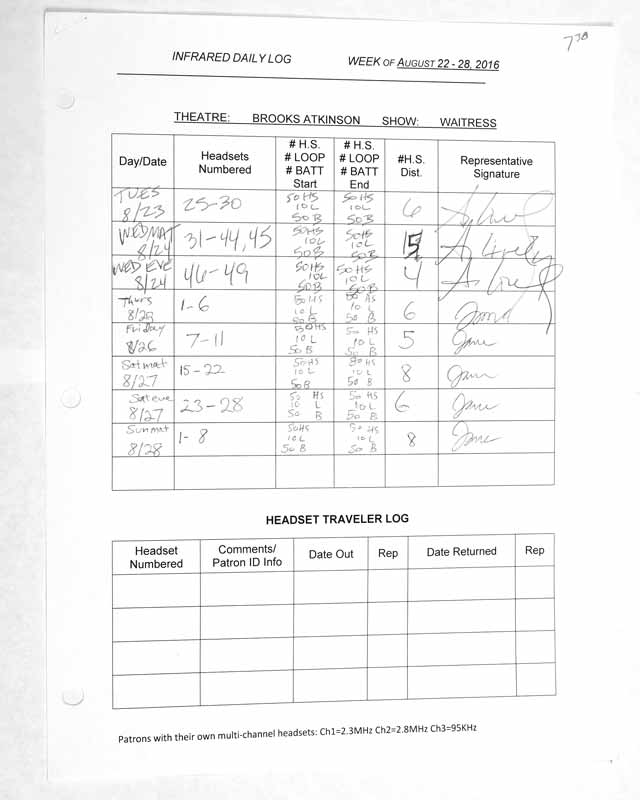 770
INFRARED DAILY LOG WEEK OF AUGUST 22 - 28, 2016
THEATRE: BROOKS ATKINSON SHOW: WAITRESS
Day/Date Headsets Numbered # H.S. # LOOP # BATT Start # H.S. # LOOP # BATT End #H.S. Dist. Representative Signature
TUES 8/23 25-30 50HS 10L 50B 50HS 10L 50B 6
WEDMAT 8/24 31-44,45 50HS 10L 50B 50HS 10L 50B 15 A. Lively
WED EVE 8/24 46-49 50HS 10L 50B 50HS 10L 50B 4
Thurs 1-6 50HS 10L 50B 50 HS 10 L 50 B 6
Friday 8/26 7-11 50HS 10L 50B 50 HS 10L 50 B 5 Jane
Satmat 8/27 15-22 50HS 10L 50B 50HS 10L 50 B 8 Jane
Sateve 8/27 23-28 50 HS 10 L 50 B 50 HS 10 L 50 B 6 Jane
Sunmat 8/28 1-8 50HS 10L 50 B 50 HS 10 L 50 B 8 Jane
HEADSET TRAVELER LOG
Headset Numbered Comments/ Patron ID Info Date Out Rep Date Returned Rep
Patrons with their own multi-channel headsets: Ch1=2.3MHz Ch2=2.8MHz Ch3=95KHz